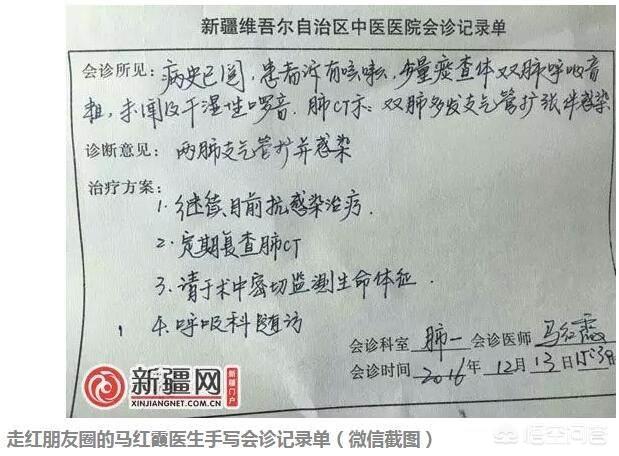 新疆维吾尔自治区中医医院会诊记录单
会诊所见：病史已阅，患者诉有咳嗽，少量痰查体双肺呼吸音
粗，未闻及干湿性啰音．肺CT示：双肺多发支气管扩张伴感染
诊断意见：两肺支气管扩并感染
治疗方案：
1.继续目前抗感染治疗．
2.定期复查肺CT
3.请于术中密切监测生命体征．
4.呼吸科随访
会诊科室 肺一 会诊医师 马红霞
会诊时间 2016年12月13日
新疆网
新疆门户
XINJIANGNET.COM.CN
走红朋友圈的马红霞医生手写会诊记录单（微信截图）
悟空问答